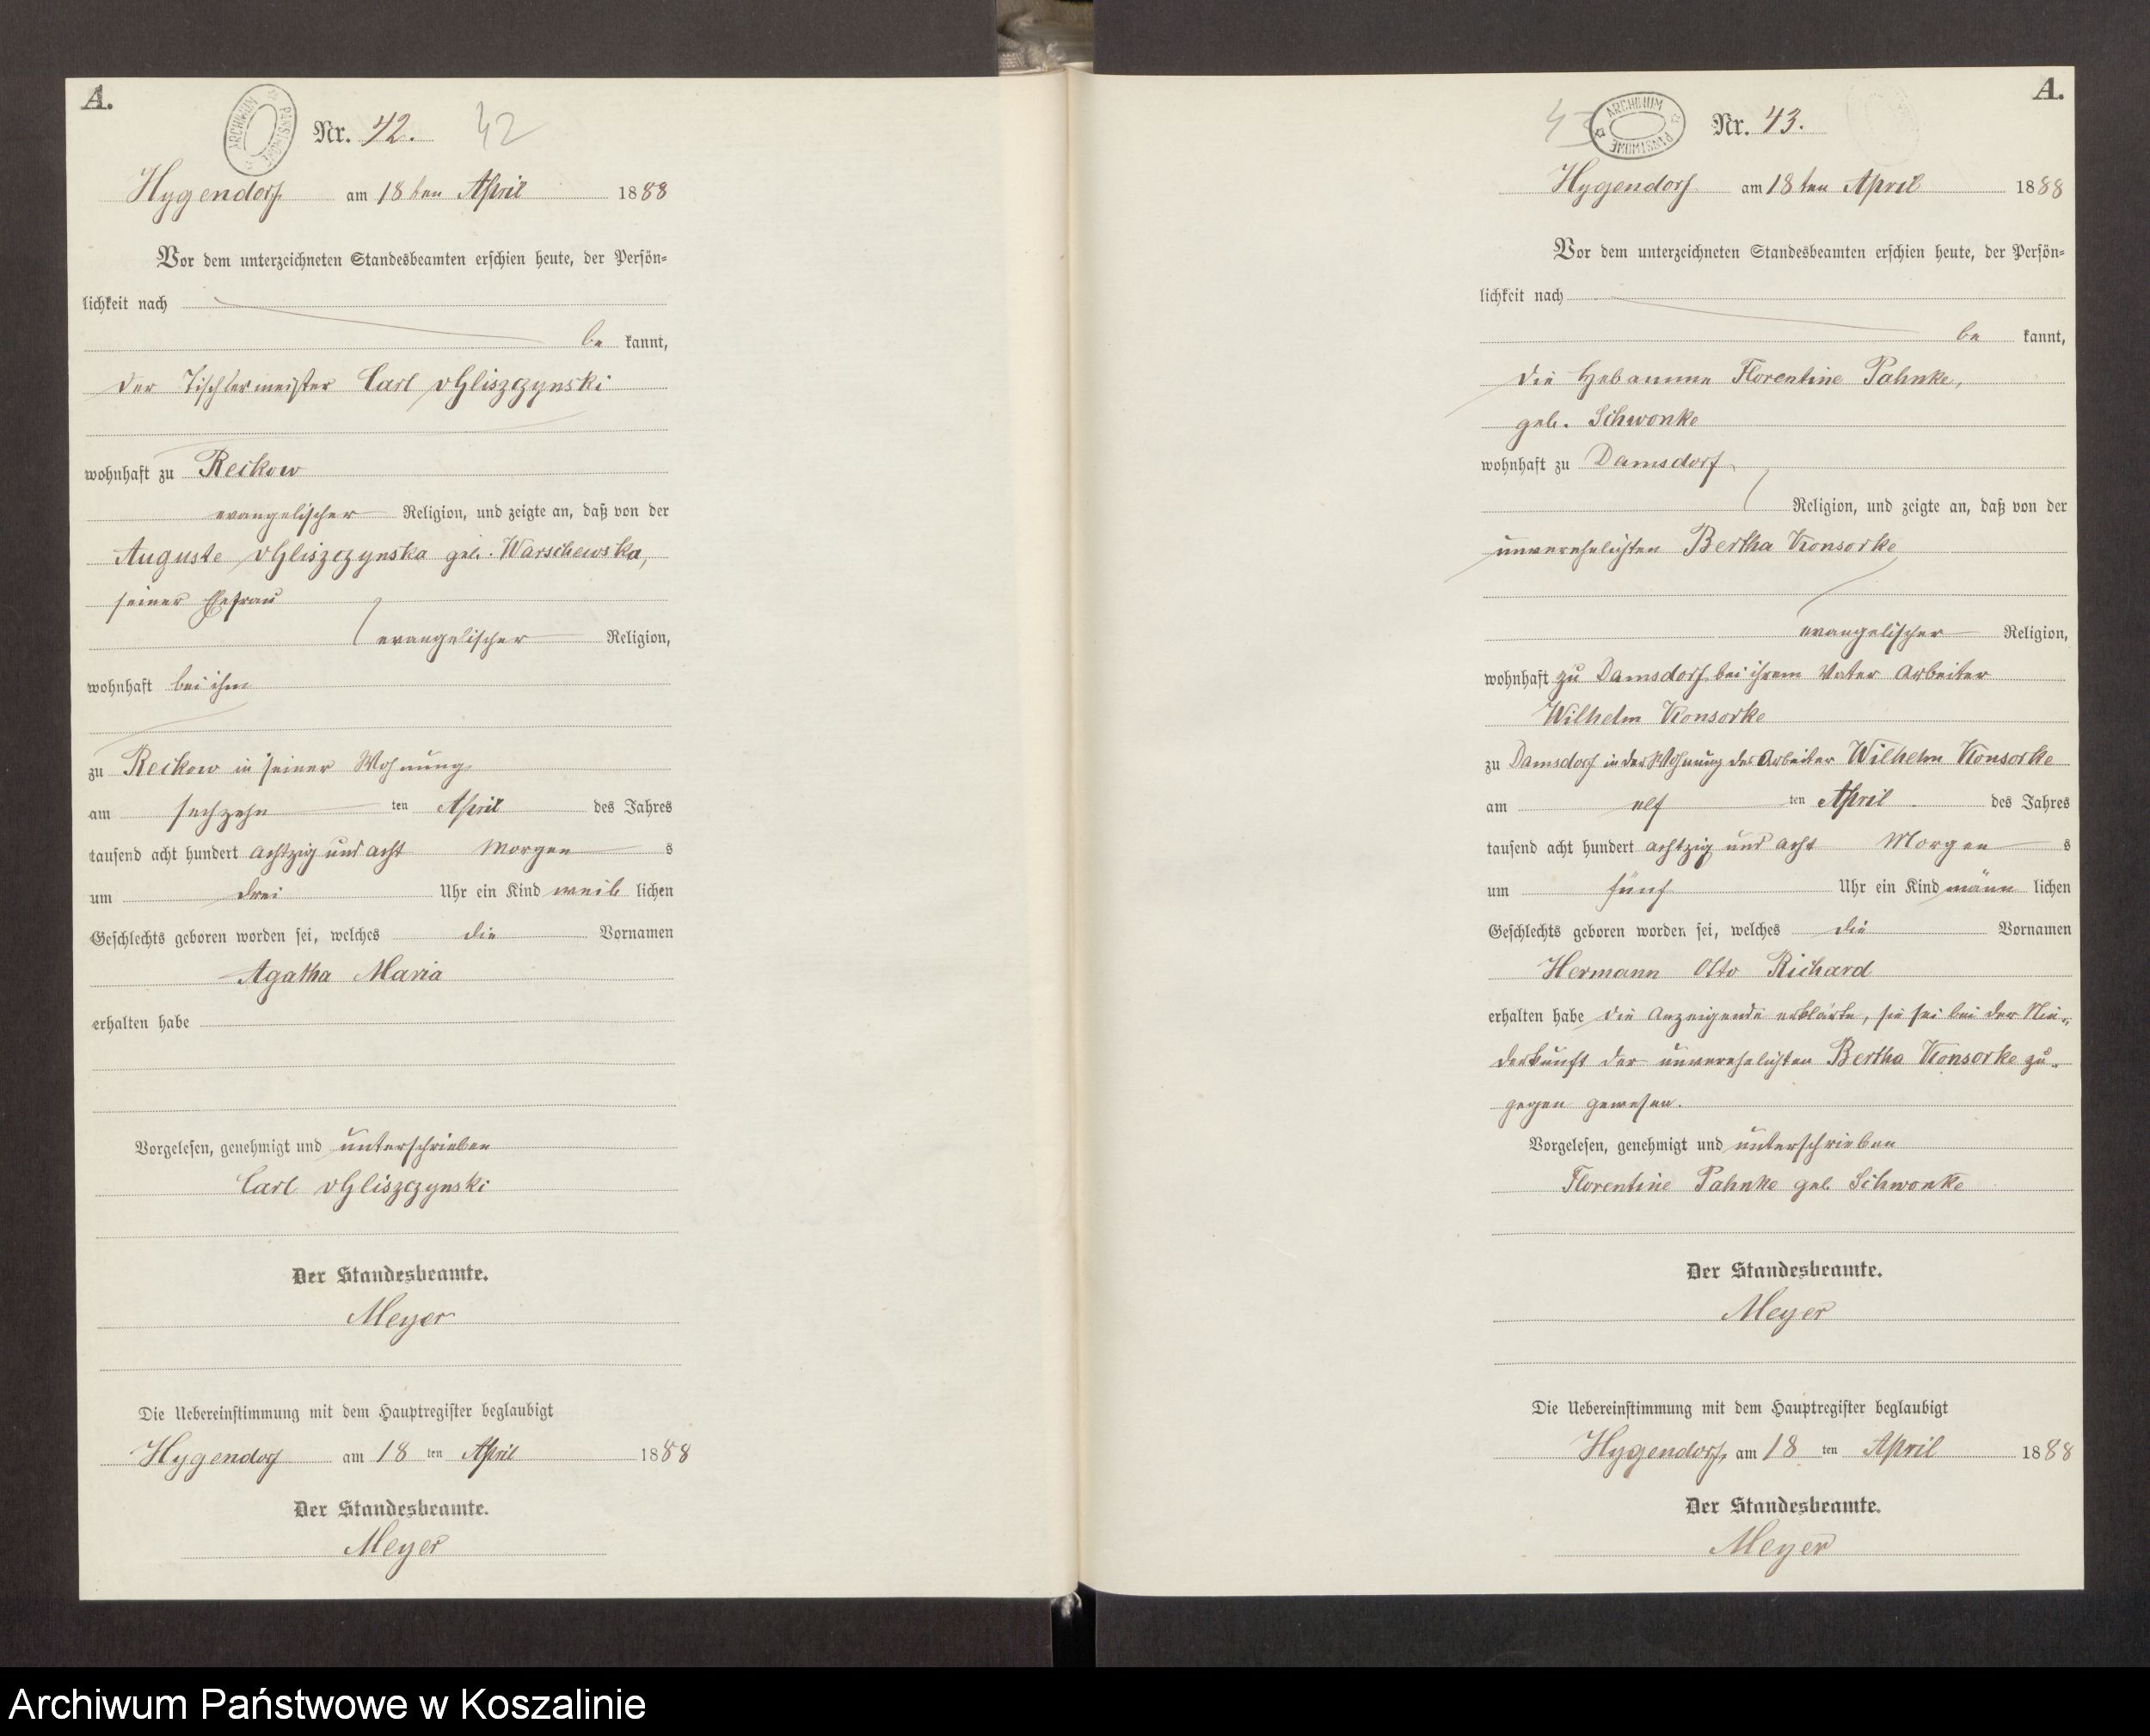 A.
ARCHIWUM PAŃSTWOWE
Nr. 42. 42
Hygendorf am 18ten April 1888
Vor dem unterzeichneten Standesbeamten erschien heute, der Persön-
lichkeit nach
be kannt,
der Tischlermeister Carl vGliszczynski
wohnhaft zu Reckow
evangelischer Religion, und zeigte an, daß von der
Auguste vGliszczynska geb. Warschewska,
seiner Ehefrau
evangelischer Religion,
wohnhaft bei ihm
zu Reckow in seiner Wohnung
am sechzehn ten April des Jahres
tausend acht hundert achtzig und acht Morgen s
um drei Uhr ein Kind weib lichen
Geschlechts geboren worden sei, welches die Vornamen
Agatha Maria
erhalten habe
Vorgelesen, genehmigt und unterschrieben
Carl vGliszczynski
Der Standesbeamte.
Meyer
Die Uebereinstimmung mit dem Hauptregister beglaubigt
Hygendorf am 18 ten April 1888
Der Standesbeamte.
Meyer
A.
43 ARCHIWUM PAŃSTWOWE Nr. 43.
Hygendorf am 18ten April 1888
Vor dem unterzeichneten Standesbeamten erschien heute, der Persön-
lichkeit nach
be kannt,
die Hebamme Florentine Pahnke,
geb. Schwonke
wohnhaft zu Damsdorf
Religion, und zeigte an, daß von der
unverehelichten Bertha Konsorke
evangelischer Religion,
wohnhaft zu Damsdorf bei ihrem Vater Arbeiter
Wilhelm Konsorke
zu Damsdorf in der Wohnung des Arbeiter Wilhelm Konsorke
am elf ten April des Jahres
tausend acht hundert achtzig und acht Morgen s
um fünf Uhr ein Kind männ lichen
Geschlechts geboren worden sei, welches die Vornamen
Hermann Otto Richard
erhalten habe die Anzeigende erklärte, sie sei bei der Nie-
derkunft der unverehelichten Bertha Konsorke zu-
gegen gewesen.
Vorgelesen, genehmigt und unterschrieben
Florentine Pahnke geb. Schwonke
Der Standesbeamte.
Meyer
Die Uebereinstimmung mit dem Hauptregister beglaubigt
Hygendorf, am 18 ten April 1888
Der Standesbeamte.
Meyer
Archiwum Państwowe w Koszalinie